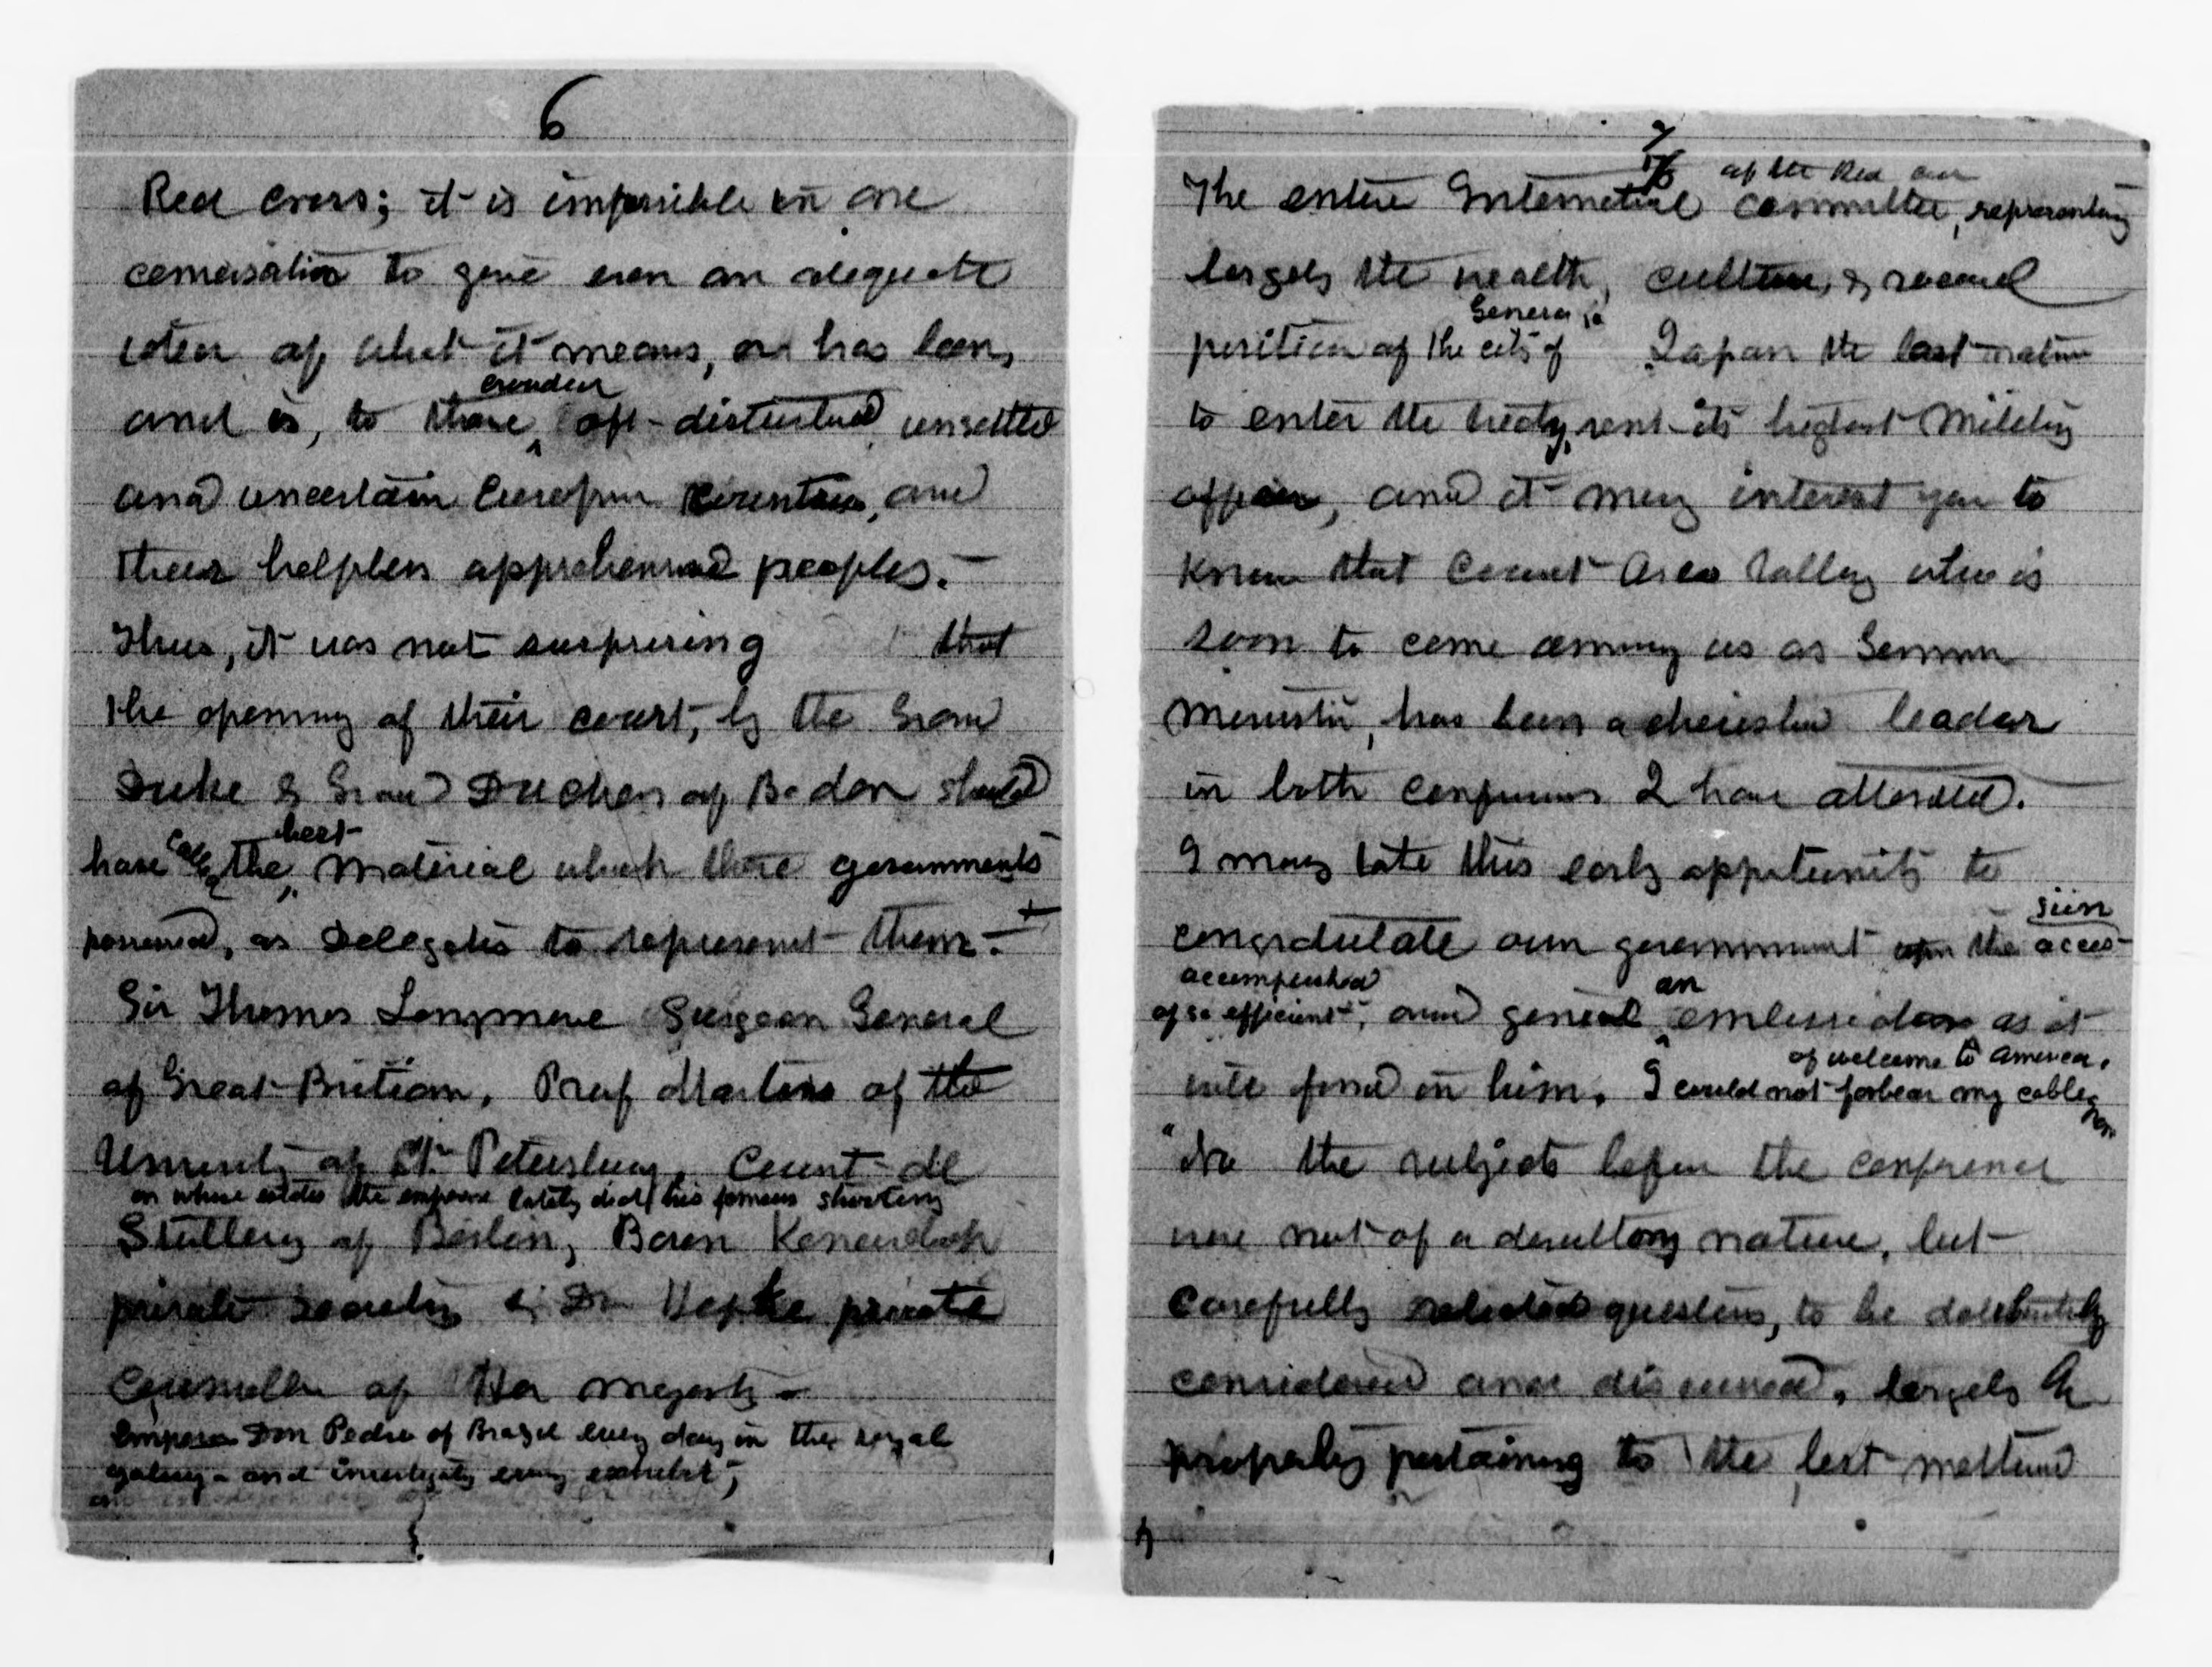 6
Red Cross; it is impossible in one
conversation to give even an adequate
idea of what it means, or has been,
crowded
and is, to those oft-disturbed unsettled
and uncertain European countries, and
their helpless apprehensive peoples.-
Thus, it was not surprising that
the opening of their court, by the Grand
Duke & Grand Duchess of Baden should
best
have the material which those governments
possessed, as Delegates to represent them.-
Sir Thomas Longmore Surgeon General
of Great Britian, Prof Martens of the
University of St. Petersburg, Count de
on whose estates the emperor lately did his famous shooting
Stillberg of Berlin, Baron
private secretary & Dr Hepke private
Counsellor of Her majesty -
Emperor Don Pedro of Brazil every day in the royal
gallery - and investigating every exhibit,
7
of the Red
The entire International Committee, representing
largely the wealth, culture, & social
Geneva
position of the city of Japan the last nation
to enter the treaty, sent its highest Military
officer, and it may interest you to
know that Count Arco Valley who is
soon to come among us as German
Minister, has been a cherished leader
in both conferences I have attended.
I may take this early oppertunity to
sion
congratulate our government upon the acces-
accomplished
of so efficient, and genial
an
as it
will find in him.
of welcome to America.
I could not forbear my cablegram
the subjects before the conference
were not of a desultory nature, but
Carefully selected questions, to be deliberately
considered and discussed, largely &
properly pertaining to the best